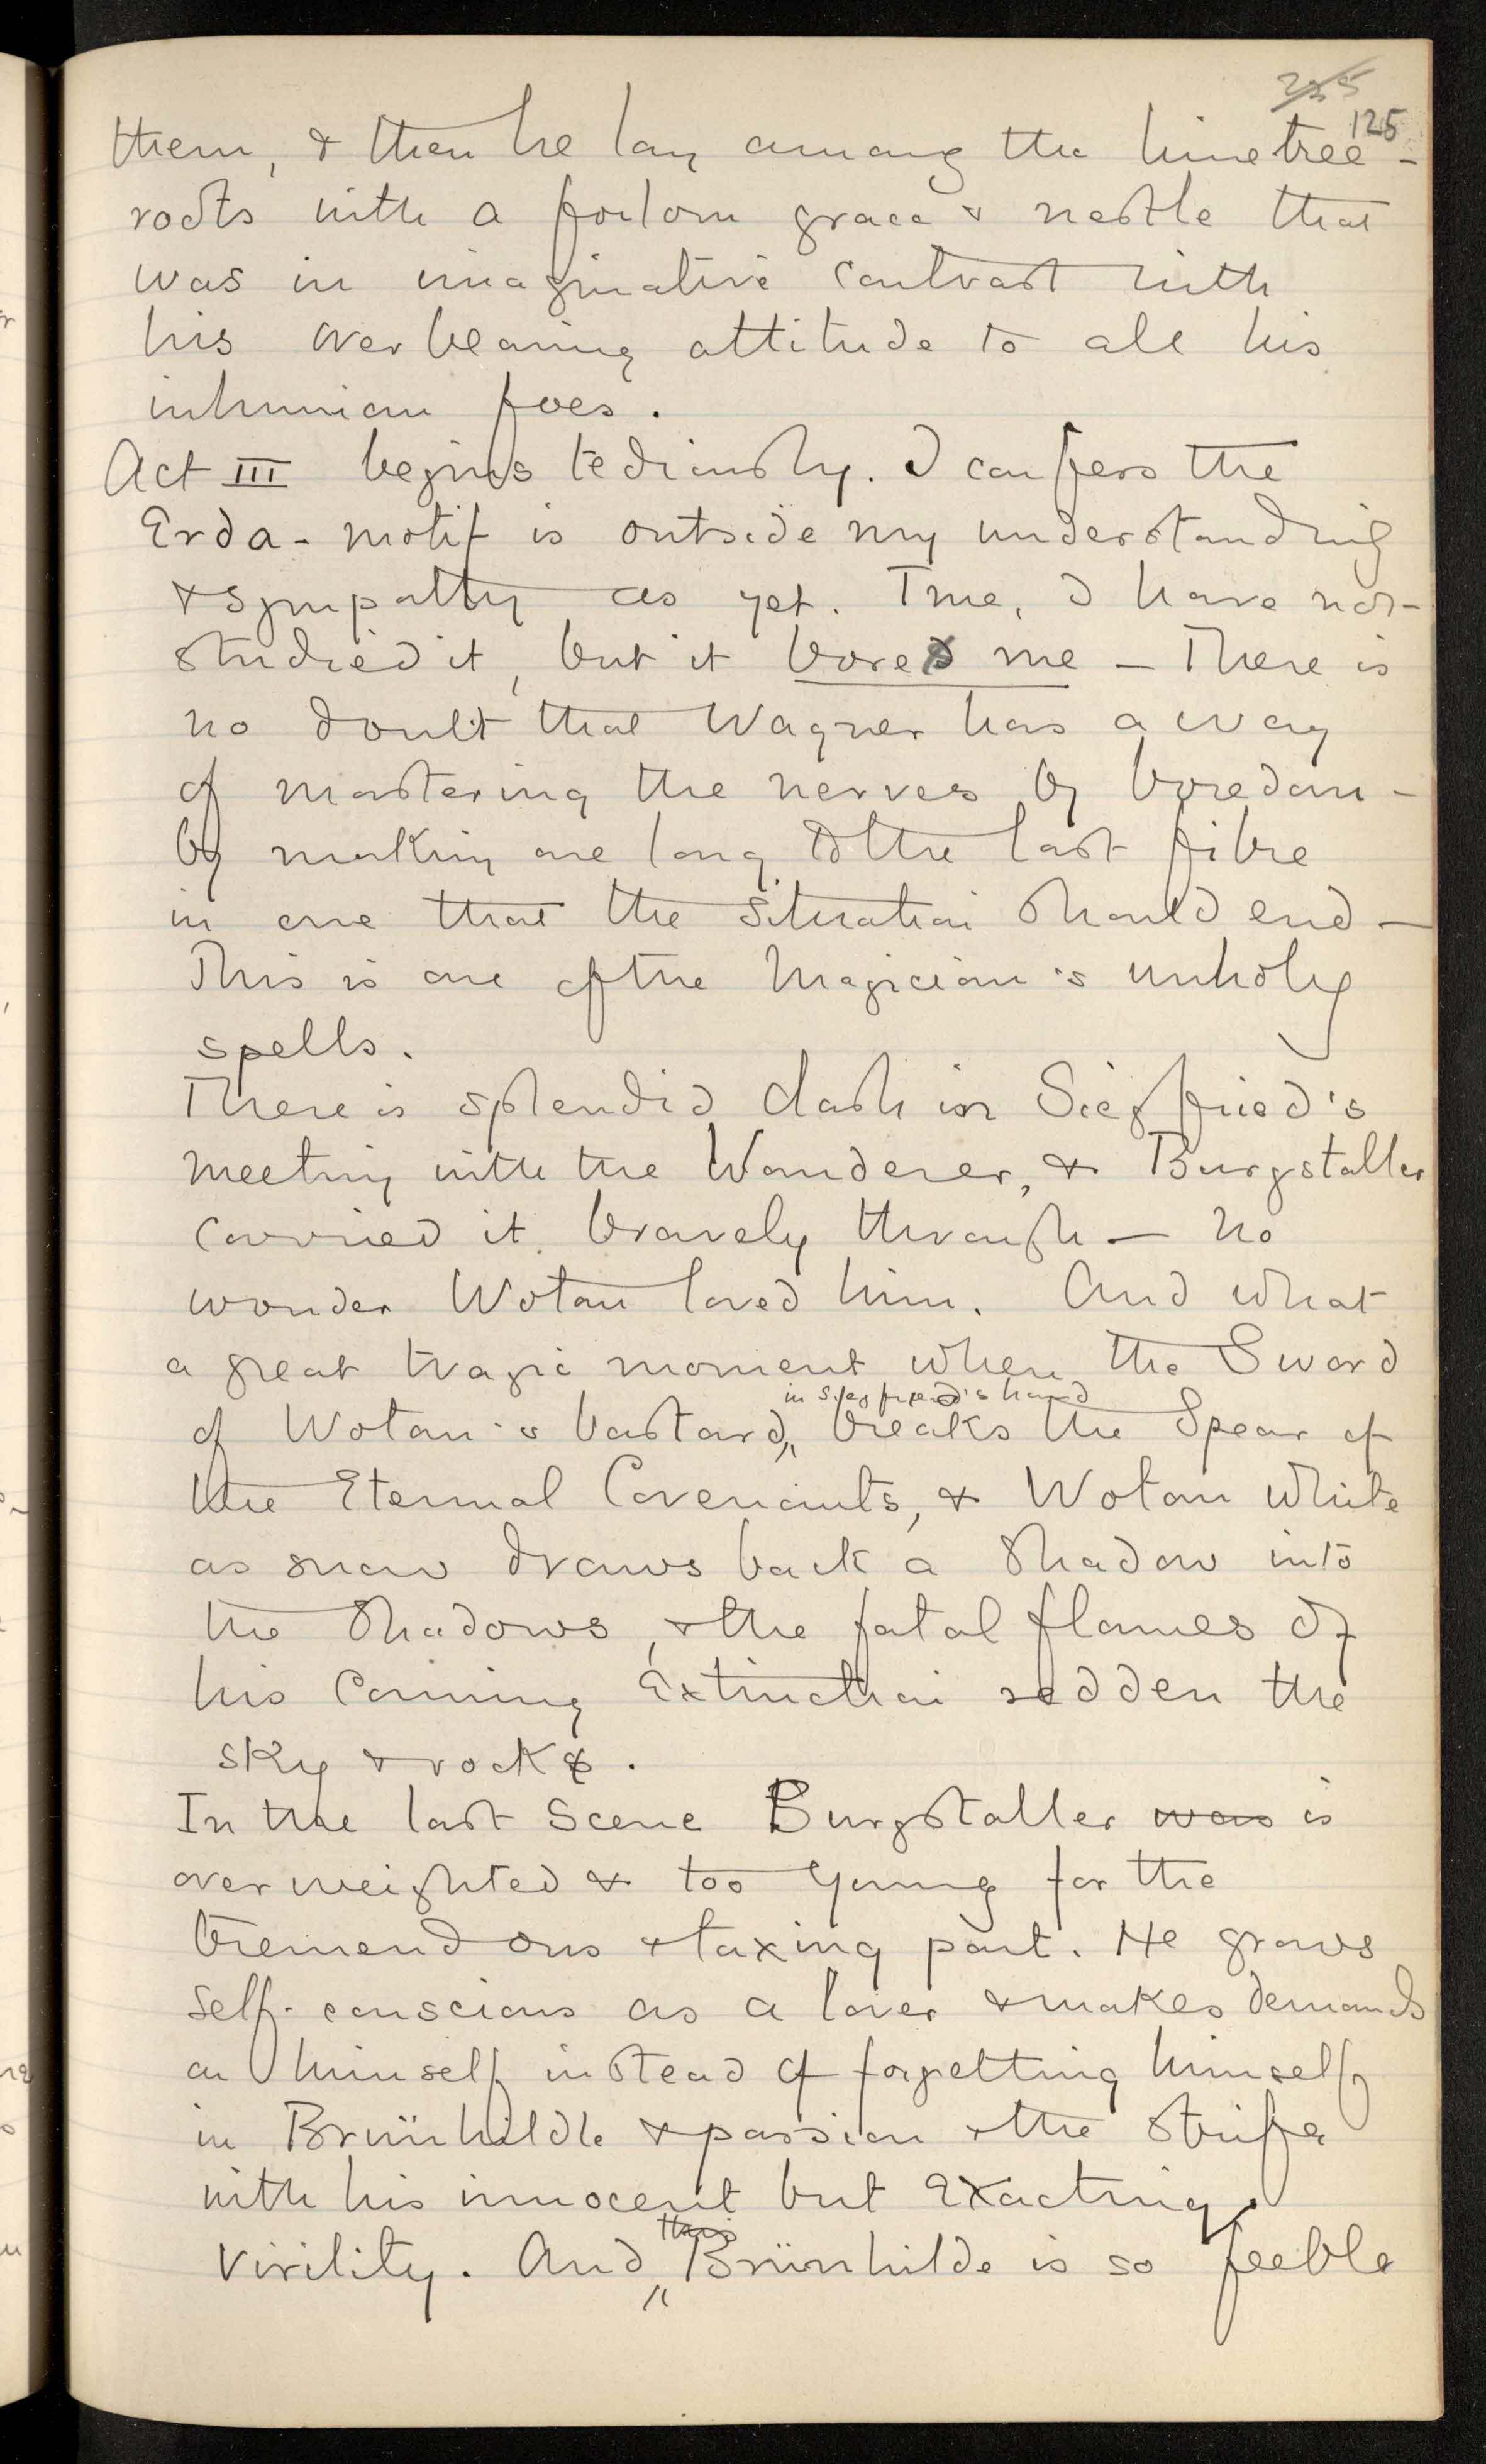 235
125
them, & then he lay among the lime tree-
roots with a forlorn grace & nestle that
was in imaginative contrast with
his overbearing attitude to all his
inhuman foes.
Act III begins tediously. I confess the
Erda-motif is outside my understanding
& sympathy as yet. True, I have not
studied it, but it bores me — There is
no doubt that Wagner has a way
of mastering the nerves by boredom -
by making one long to the last fibre
in one that the situation should end —
This is one of the Magician's unholy
spells.
There is splendid dash in Siegfried's
meeting with the Wanderer, & Burgstaller
carried it bravely through — no
wonder Wotan loved him. And what
a great tragic moment when the Sword
in Siegfried's hand
of Wotan's bastard, breaks the Spear of
the Eternal Covenants, & Wotan white
as snow draws back a Shadow into
the Shadows, & the fatal flames of
his Coming Extinction redden the
sky & rocks.
In the last Scene Burgstaller was is
overweighted & too young for the
tremendous & taxing part. He grows
self-conscious as a lover & makes demands
on himself instead of forgetting himself
in Brünhilde & passion & the strife
with his innocent but exacting
this
virility. And Brünhilde is so feeble